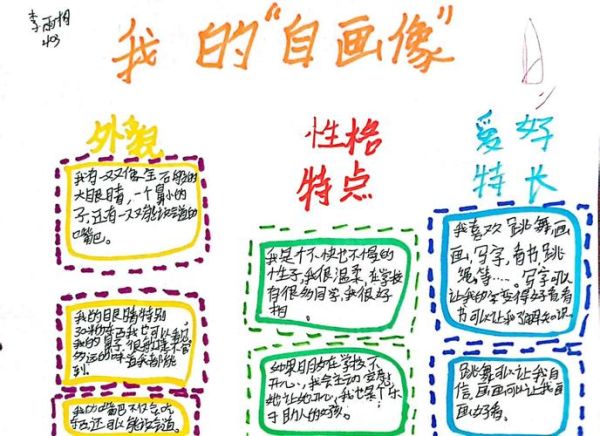 李雨桐
403
我的“自画像”
外貌
我有一双像宝石般的
大眼睛，一个鼻小的
子，还有一双能说会道的
嘴巴。
我的眼睛特别
我的鼻子很
到。
我的嘴巴不仅会吃
还可以能说会道。
性格
特点
我是个不快也不慢的
性子，我很温柔，在学校
有很多同学，我很好
相
如果朋友在学校不
开心，我会主动安慰
她让她开心，我也是个乐
于助人的女孩。
爱好
特长
我喜欢跳舞，画
画，写字，看书，跳
绳等……。写字可以
让我的字变得好看看
书可以让我了解知识
跳舞可以让我自
信，画画可以让我
画好看。